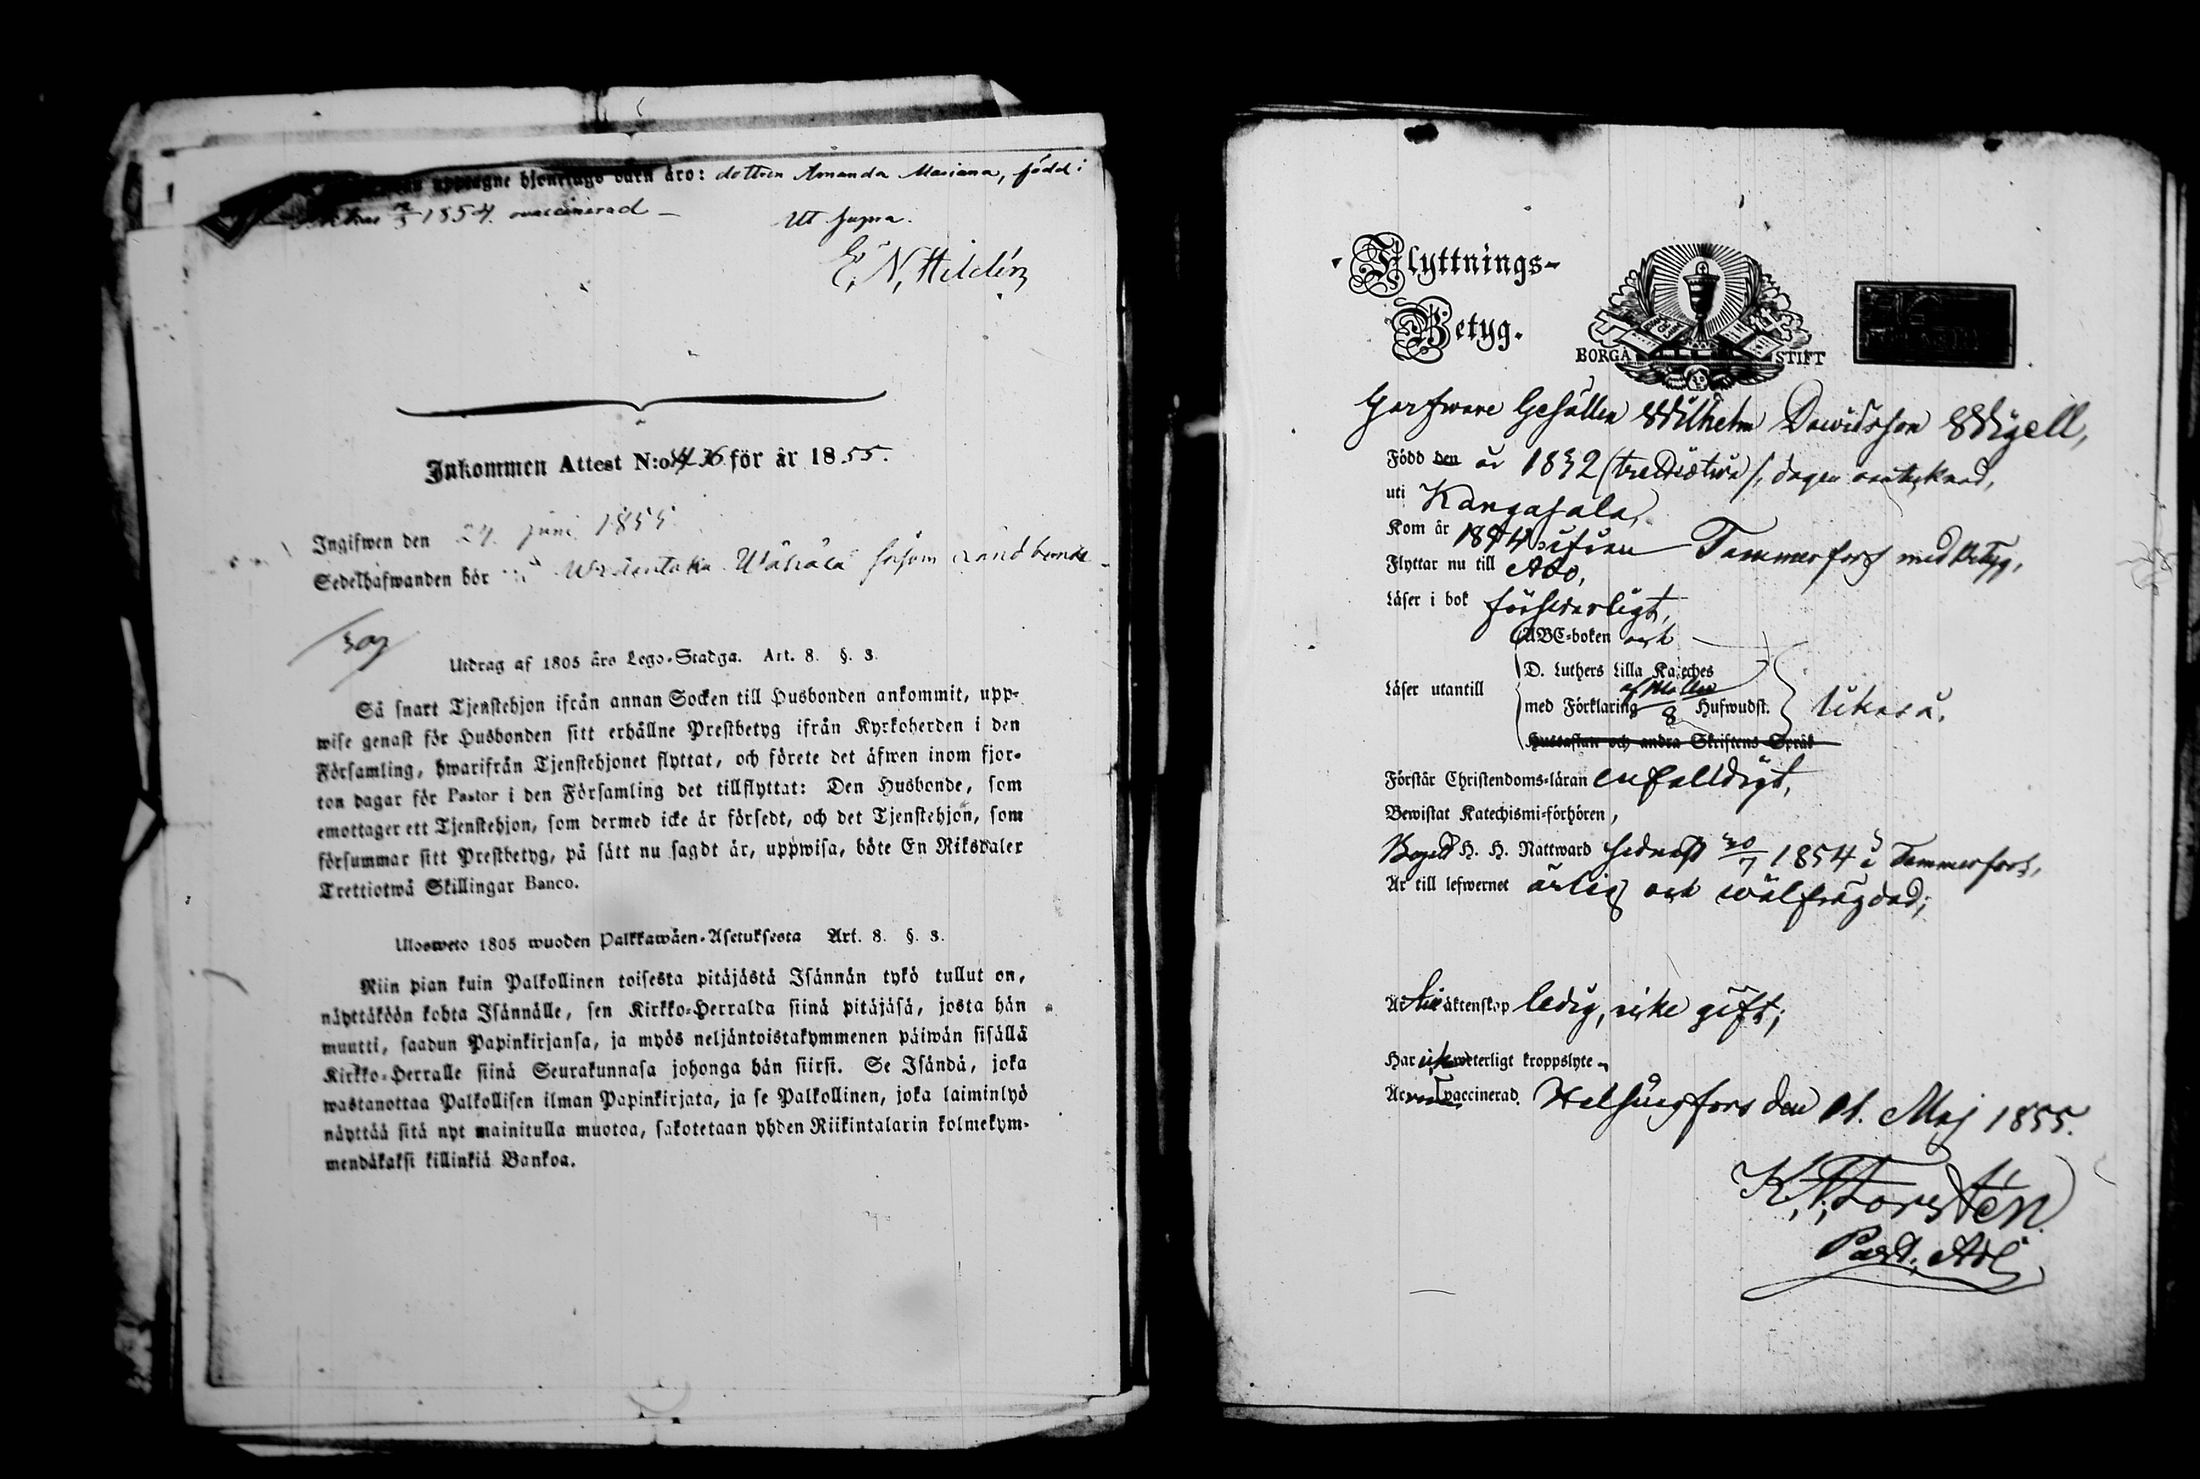 upptagne hjonelags barn äro: dottren Amanda Mariana, född i
1854. ovaccinerad —
Ut supra.
E. N. Hildén
Inkommen Attest N:o 436 för år 1855.
Ingifwen den 24 juni 1855
Sedelhafwanden bör i Wäháłá såsom Landbonde
309
Utdrag af 1805 års Lego-Stadga. Art. 8. §. 3.
Så snart Tjenstehjon ifrån annan Socken till Husbonden ankommit, upp-
wise genast för Husbonden sitt erhållne Prestbetyg ifrån Kyrkoherden i den
Församling, hwarifrån Tjenstehjonet flyttat, och förete det äfwen inom fjor-
ton dagar för Pastor i den Församling det tillflyttat: Den Husbonde, som
emottager ett Tjenstehjon, som dermed icke är försedt, och det Tjenstehjon, som
försummar sitt Prestbetyg, på sätt nu sagdt är, uppwisa, böte En Riksdaler
Trettiotwå Skillingar Banco.
Ulosweto 1805 wuoden Palkkawäen-Asetuksesta Art. 8. §. 3.
Niin pian kuin Palkollinen toisesta pitäjästä Isännän tykö tullut on,
näyttäköön kohta Isännälle, sen Kirkko-Herralda siinä pitäjäsä, josta hän
muutti, saadun Papinkirjansa, ja myös neljäntoistakymmenen päiwän sisällä
Kirkko-Herralle siinä Seurakunnasa johonga hän siirsi. Se Isändä, joka
wastanottaa Palkollisen ilman Papinkirjata, ja se Palkollinen, joka laiminlyö
näyttää sitä nyt mainitulla muotoa, sakotetaan yhden Riikintalarin kolmekym-
mendäkaksi killinkiä Bankoa.
Flyttnings-
Betyg.
BORGÅ STIFT
Garfware Gesällen Wilhelm Dawidsson Wigell,
Född den år 1832 (trettiotwå), dagen oantecknad,
uti Kangasala,
Kom år 1854 ifrån Tammerfors med betyg,
Flyttar nu till Åbo,
Läser i bok försvarligt,
ABC-boken och
D. Luthers Lilla Kateches
Läser utantill
med Förklaring 8 Hufwudst.
likaså.
Hustaflan och andra Skriftens Språk
Förstår Christendoms-läran enfalldigt,
Bewistat Katechismi-förhören,
Begått H. H. Nattward sednast 30/7 1854 i Tammerfors,
Är till lefwernet ärlig och wälfrägdad;
Är till äktenskap ledig, icke gift;
Har icke weterligt kroppslyte
Är vaccinerad. Helsingfors den 21. Maj 1855.
K. J. Forstén
Past. Adj.